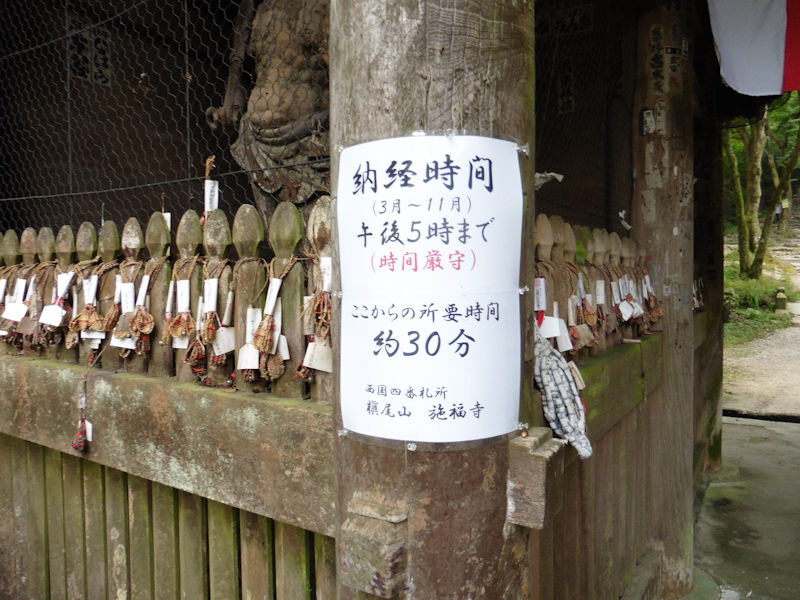 納経時間
(3月〜11月)
午後5時まで
(時間厳守)
ここからの所要時間
約30分
西国四番札所
槇尾山 施福寺